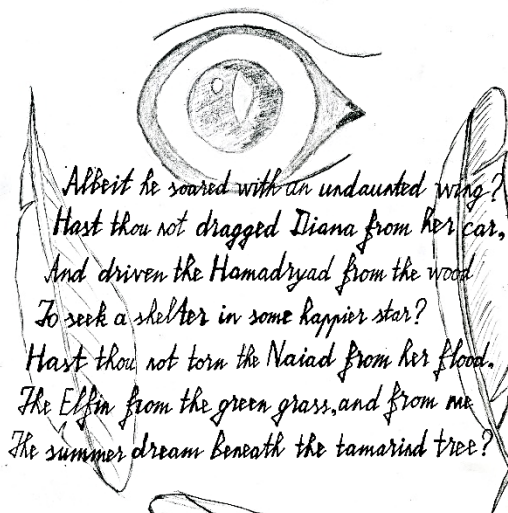 Albeit he soared with an undaunted wing?
Hast thou not dragged Diana from her car,
And driven the Hamadryad from the wood
To seek a shelter in some happier star?
Hast thou not torn the Naiad from her flood,
The Elfin from the green grass, and from me
The summer dream beneath the tamarind tree?